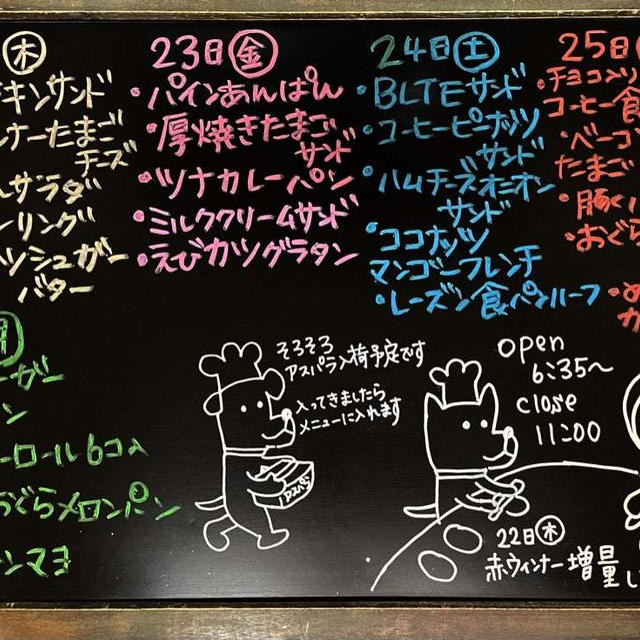 ㊍
チキンサンド
ンナーたまご
チーズ
サラダ
ンリング
ッシュガー
バター
23日㊎
・パインあんぱん
・厚焼きたまご
サンド
・ツナカレーパン
・ミルククリームサンド
・えびカツグラタン
24日㊏
・BLTEサンド
・コーヒーピーナッツ
サンド
・ハムチーズオニオン
サンド
・ココナッツ
マンゴーフレンチ
・レーズン食パンハーフ
25日
・チョコ
コーヒー食
・ベーコ
たまご
・豚く
・おぐら
㊊
ーガー
ン
ーロール6コ入
おぐらメロンパン
ンマヨ
そろそろ
アスパラ入荷予定です
入ってきましたら
メニューに入れます
アスパラ
open
6:35〜
close
11:00
22日㊍
赤ウィンナー増量し